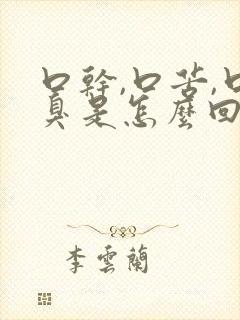 口幹,口苦,口
臭是怎麼回
李雲蘭